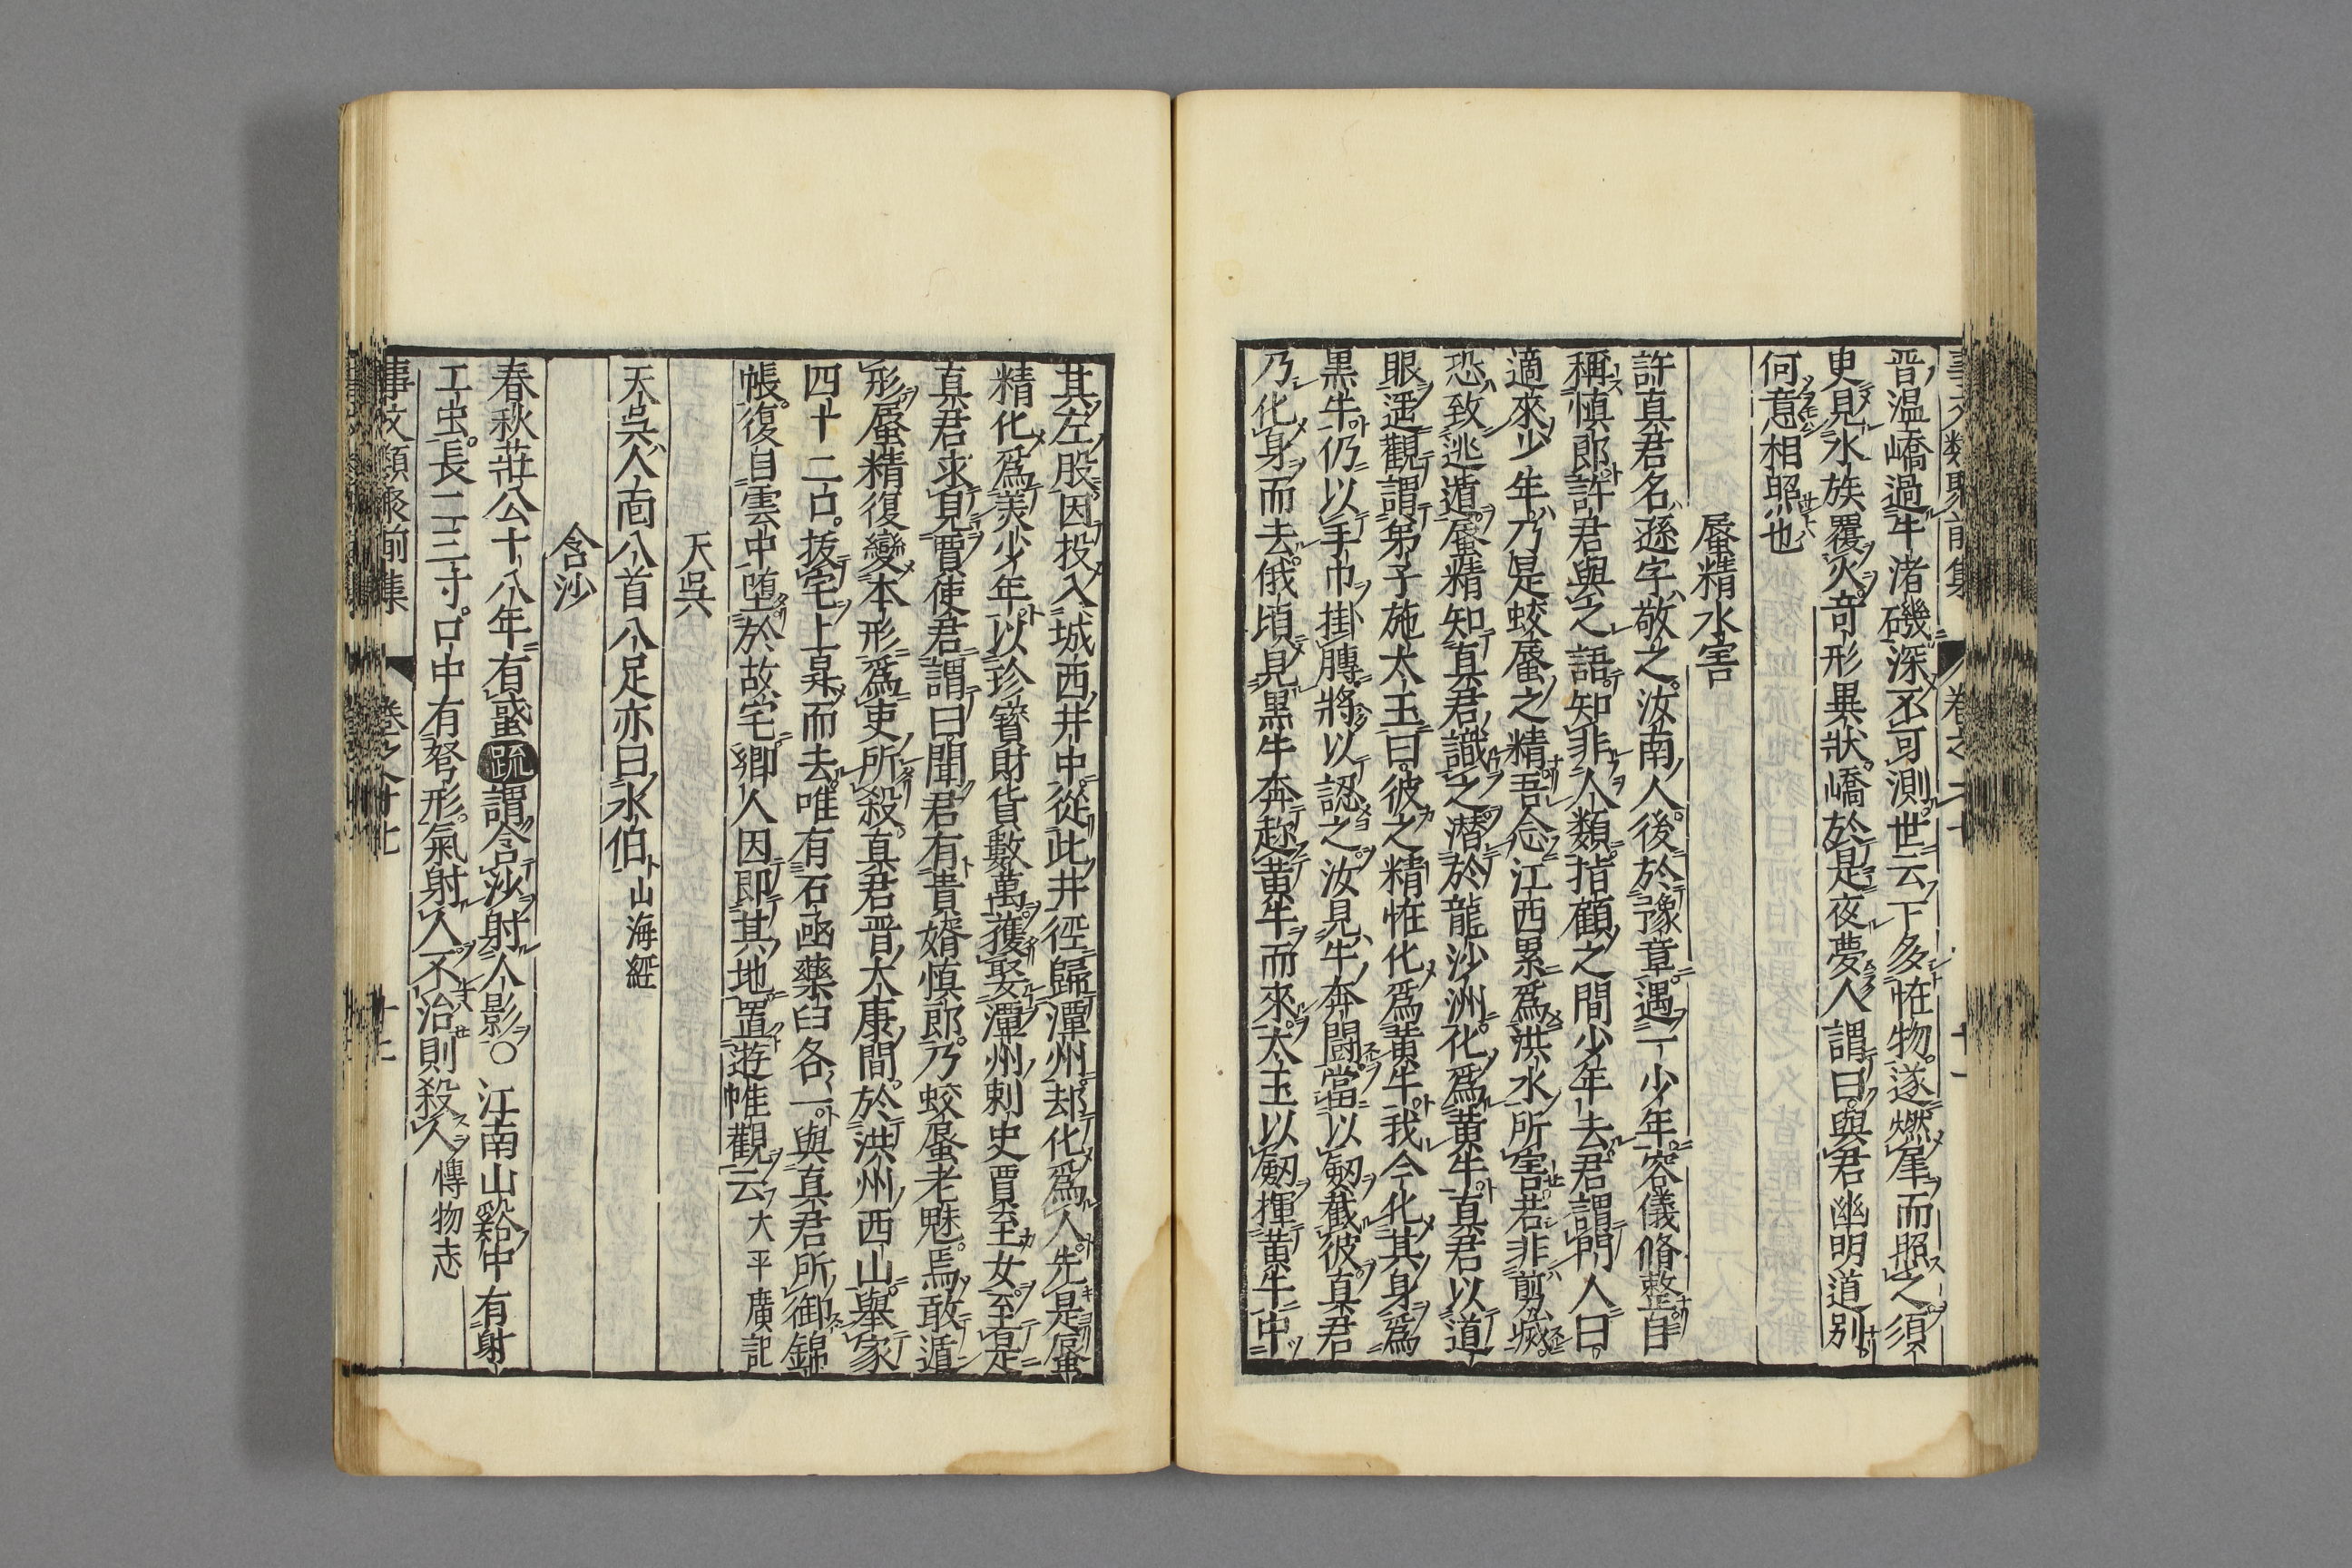 晋温嶠過牛渚磯深不可測世云下多恠物遂燃犀而照之須
更見水族覆火竒形異狀嶠於是夜夢人謂曰與君幽明道別
何意相照也
蜃精水害
許真君名遜字敬之汝南人後於豫章遇一少年容儀脩整自
稱慎郎許君與之語知非人類指顧之間少年去君謂門人曰
適來少年乃是蛟蜃之精吾念江西累爲洪水所害若非剪㓕
恐致逃遁蜃精知真君識之潜於龍沙洲化爲黄牛真君以道
眼遥觀謂弟子施大王曰彼之精恠化爲黄牛我今化其身爲
黒牛仍以手巾掛膊將以認之汝見牛奔闘當以劔截彼真君
乃化身而去俄頃見黒牛奔趂黄牛而來大王以劔揮黄牛中
其左股因投入城西井中從此井徑歸潭州却化爲人先是蜃
精化爲美少年以珍寳財貨數萬獲娶潭州刺史賈至女至是
真君求見賈使君謂曰聞君有貴婿慎郎乃蛟蜃老魅焉敢遁
形蜃精復變本形爲吏所殺真君晋大康間於洪州西山舉家
四十二口抜宅上昇而去唯有石函藥臼各一與真君所御錦
帳復自雲中堕於故宅郷人因即其地置遊帷觀云大平廣記
天呉
天呉人靣八首八足亦曰水伯山海経
含沙
春秋莊公十八年有蜮疏謂含沙射人影〇江南山谿中有射
工虫長二三寸口中有弩形氣射人不治則殺人博物志
事文類聚前集 卷之